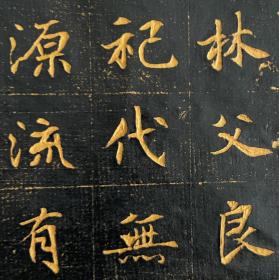 林父良
祀代無
源流有